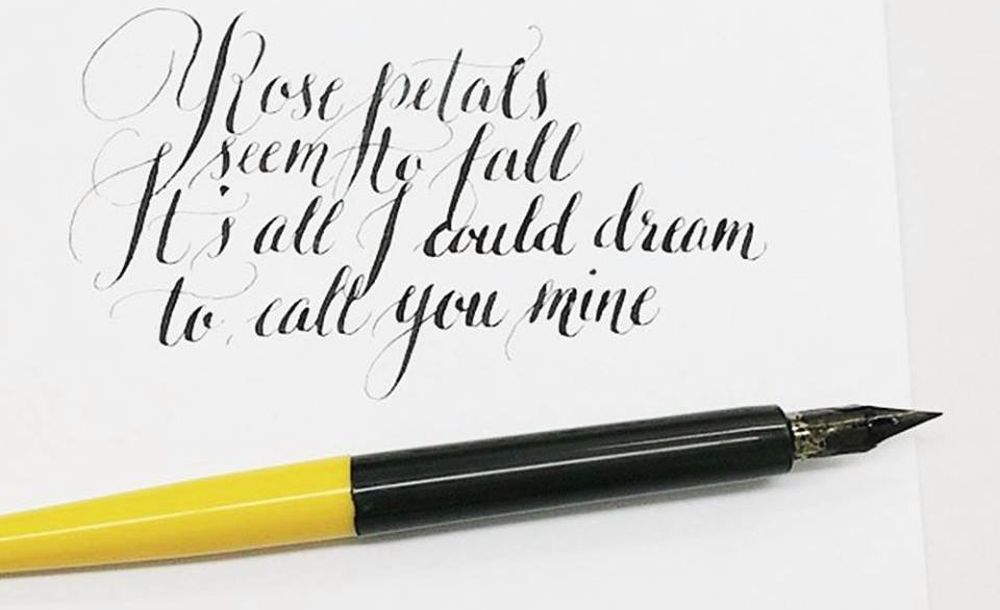 Rose petals
seem to fall
It's all I could dream
to call you mine